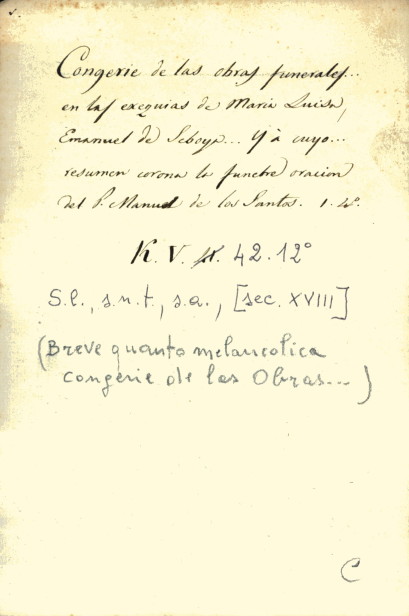 Congerie de las obras funerales...
en las exequias de Maria Luisa,
Emanuel de Seboya... Y à cuyo...
resumen corona la funebre oracion
del P. Manuel de los Santos. 1. 4º.
K. V. 42. 12º
S.l., s.n.t., s.a., [sec. XVIII]
(Breve quanto melancolica
congerie de las Obras...)
C